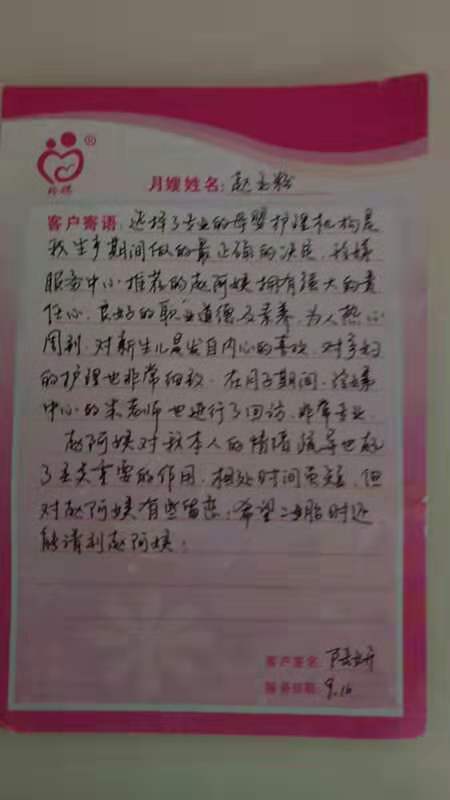 ®
月嫂姓名:赵玉粉
客户寄语:选择了专业的母婴护理机构是
我生产期间做的最正确的决定。
服务中心推荐的赵阿姨拥有强大的责
任心、良好的职业道德及素养,为人热心
周到,对新生儿是发自内心的喜欢,对产妇
的护理也非常细致。在月子期间,
中心的朱老师也进行了回访,非常专业。
赵阿姨对我本人的情绪疏导也起
了至关重要的作用,相处时间虽短,但
对赵阿姨有些留恋;希望二胎时还
能请到赵阿姨;
客户签名:
服务日期:9.16